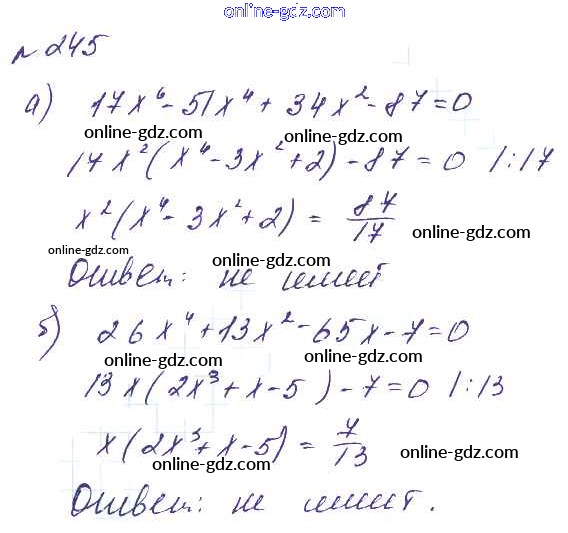 online-gdz.com
№ 245
а) 17x⁶ - 51x⁴ + 34x² - 87 = 0
online-gdz.com online-gdz.com
17x²(x⁴ - 3x² + 2) - 87 = 0 |:17
x²(x⁴ - 3x² + 2) = 87/17 online-gdz.com
online-gdz.com online-gdz.com
Ответ: не имеет
б) 26x⁴ + 13x² - 65x - 7 = 0
online-gdz.com online-gdz.com
13x(2x³ + x - 5) - 7 = 0 |:13
x(2x³ + x - 5) = 7/13 online-gdz.com
online-gdz.com
Ответ: не имеет.
online-gdz.com online-gdz.com